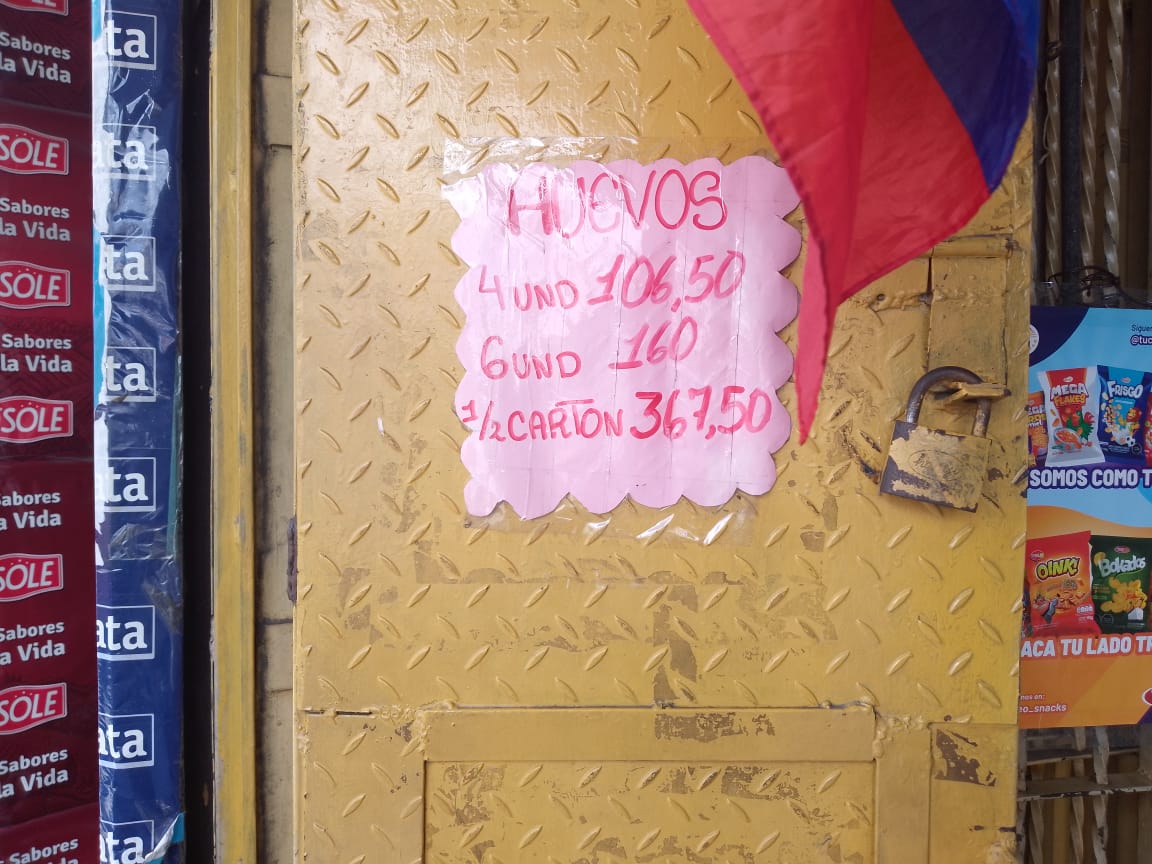 Sabores
la Vida
SOLE
Sabores
la Vida
SOLE
Sabores
la Vida
SOLE
Sabores
a Vida
SOLE
Sabores
a Vida
SOLE
Sabores
a Vida
Sabores
ta
ta
ta
ta
ta
ata
ata
ata
HUEVOS
4 UND 106,50
6 UND 160
1/2 CARTON 367,50
MEGA
FLAKES
FRISGO
SOMOS COMO T
OINK!
Bokados
ACA TU LADO TR
nos en:
eo_snacks